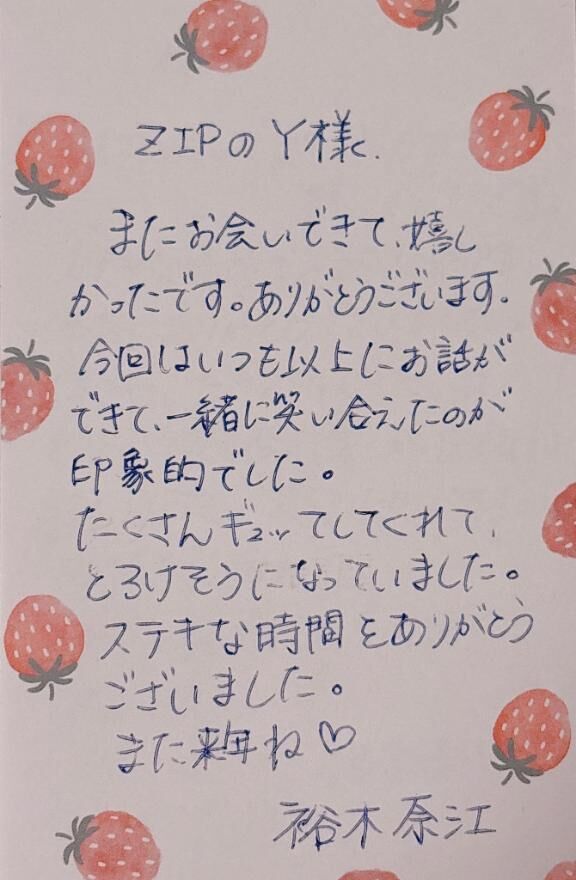 ZIPのY様.
またお会いできて、嬉し
かったです。ありがとうございます.
今回はいつも以上にお話が
できて、一緒に笑い合えたのが
印象的でした。
たくさんギュッてしてくれて、
とろけそうになっていました。
ステキな時間をありがとう
ございました。
また来年ね♡
裕木原江